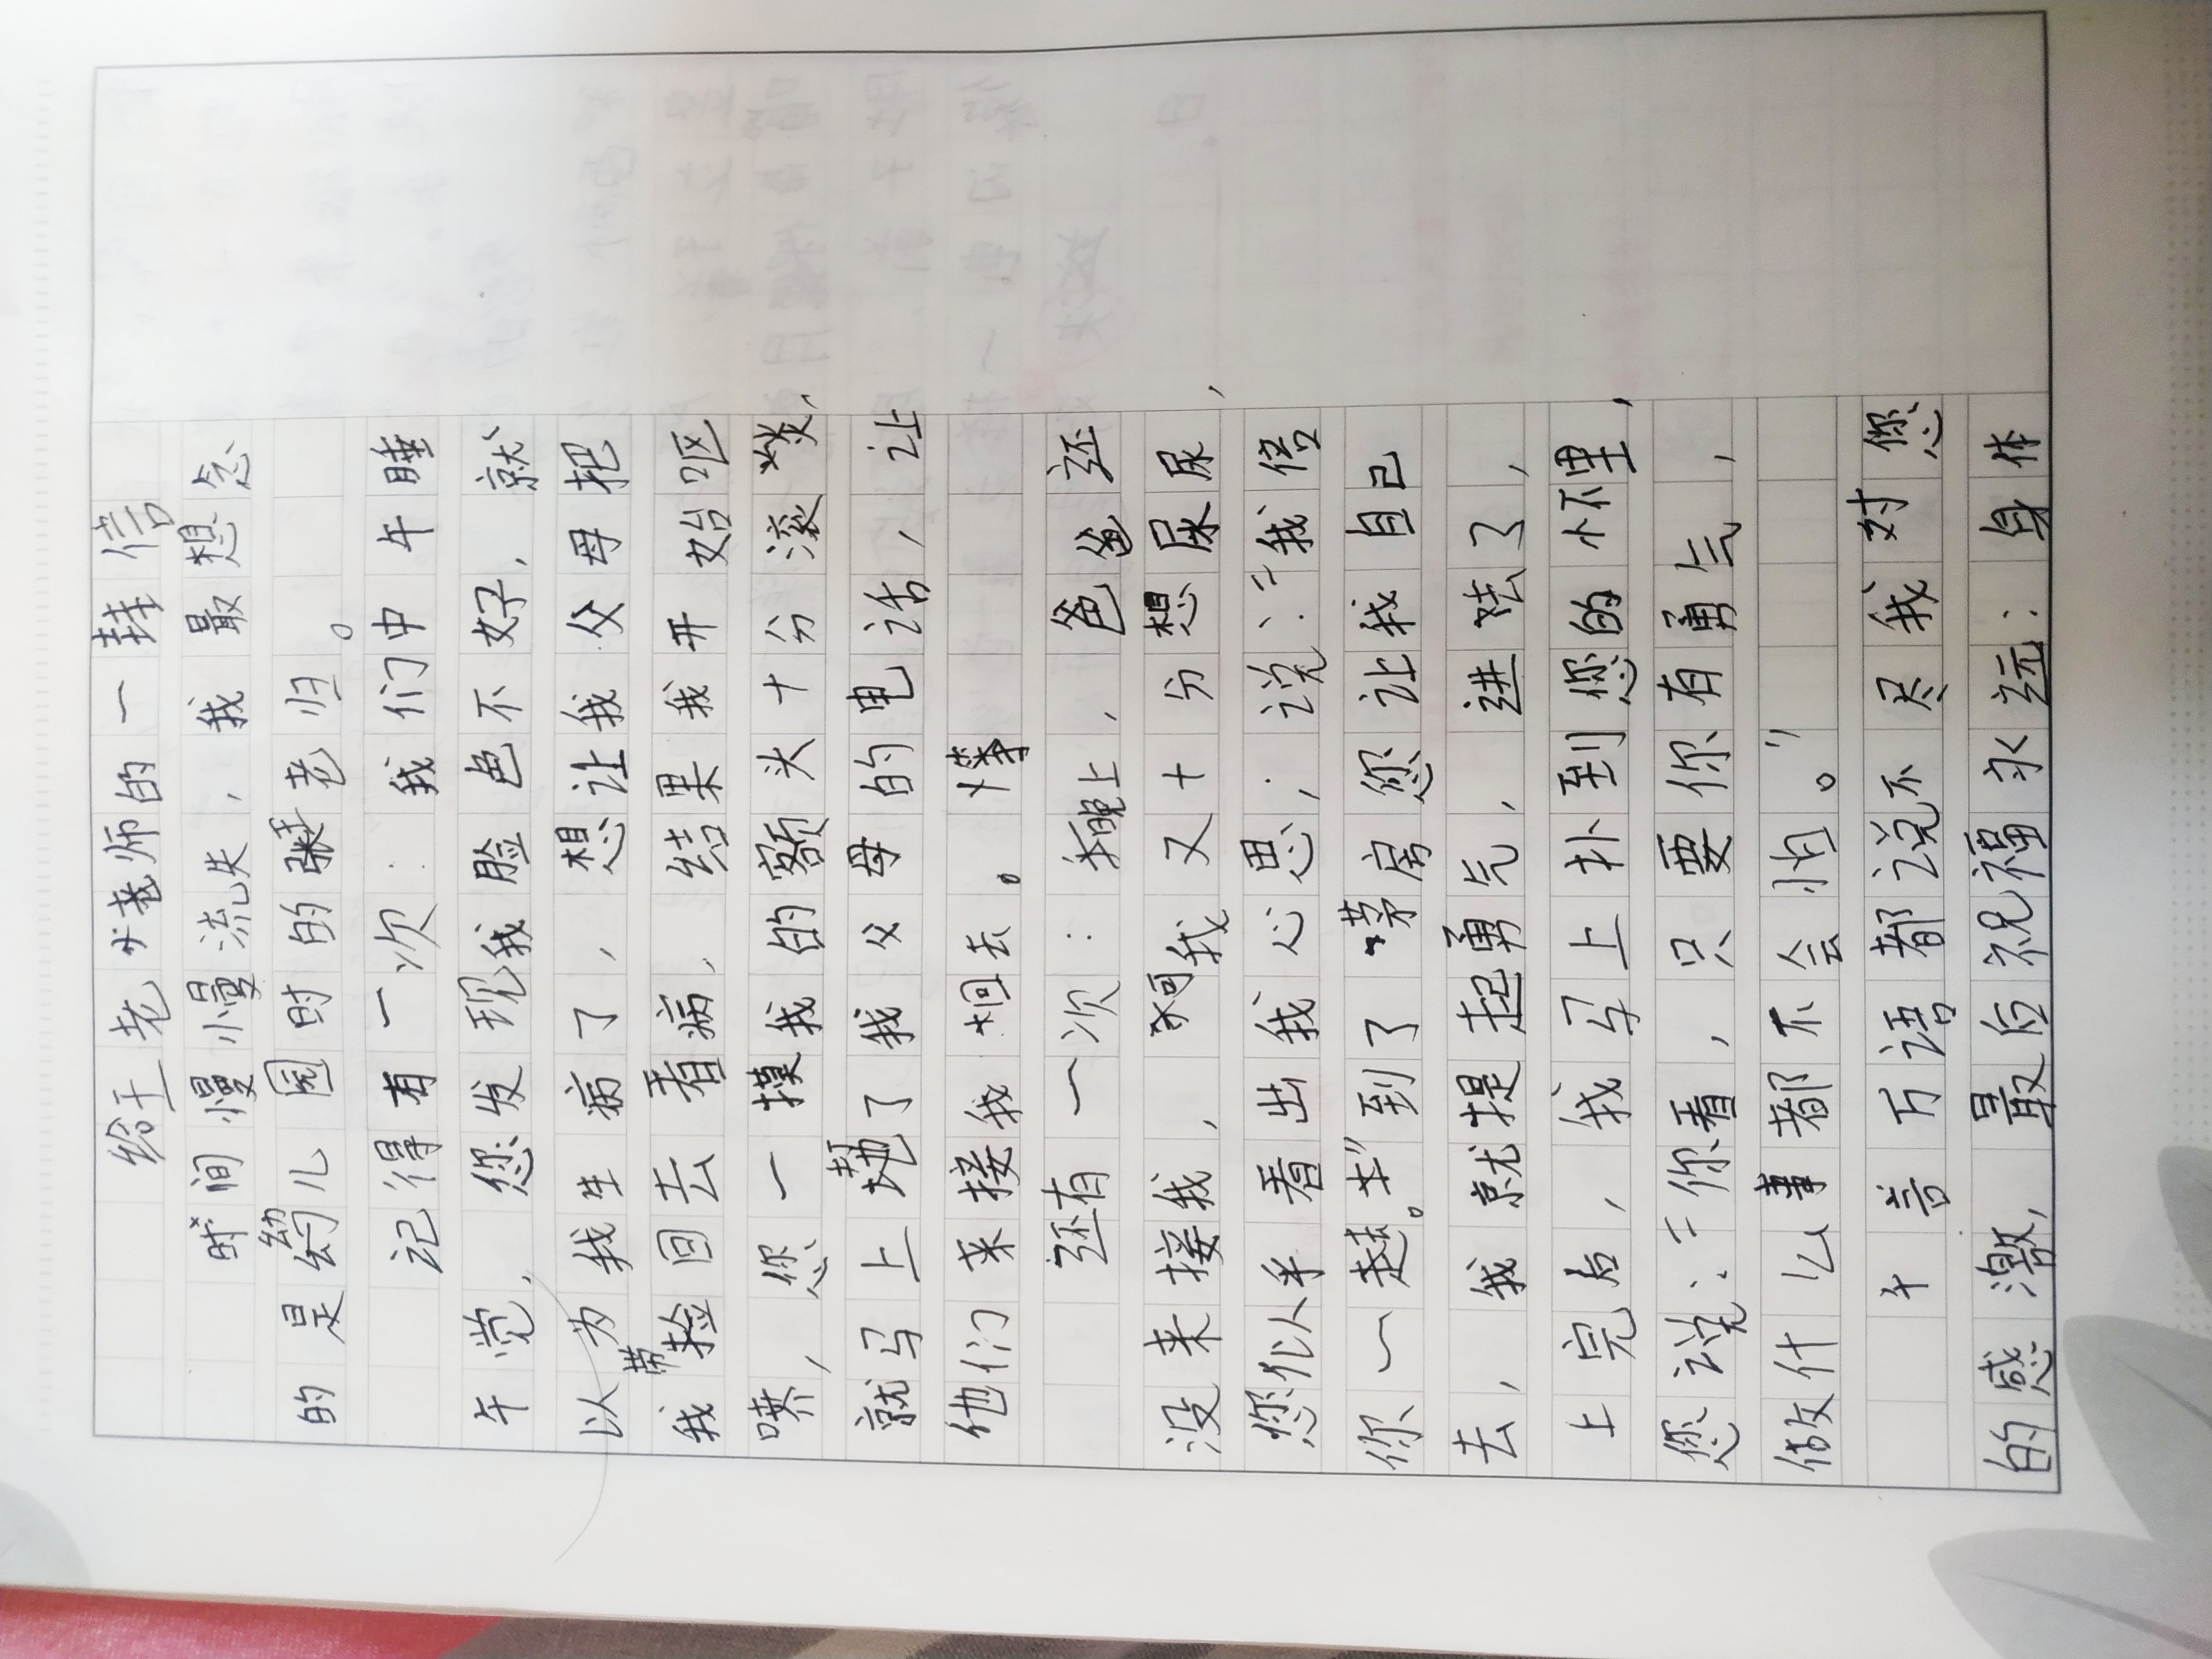 给王老老师的一封信
时间慢慢流失，我最想念
的是幼儿园时的老师。
记得有一次：我们中午睡
午觉，您发现我脸色不好，就
以为我生病了，想让我父母把
我带回去看病，结果我开始呕
，您一摸我的额头十分滚烫，
就马上打了我父母的电话，让
他们来接我回去。
还有一次：晚上，爸爸还
没来接我，可我又十分想尿尿，
您似乎看出我心思，说：“我陪
你一起去”到了茅房您让我自己
去，我就提起勇气，进去了，
上完后，我马上扑到您的怀里，
您说：“你看，只要你有勇气，
做什么事都不会怕。”
千言万语都说不尽我对您
的感激，最后祝福永远：身体